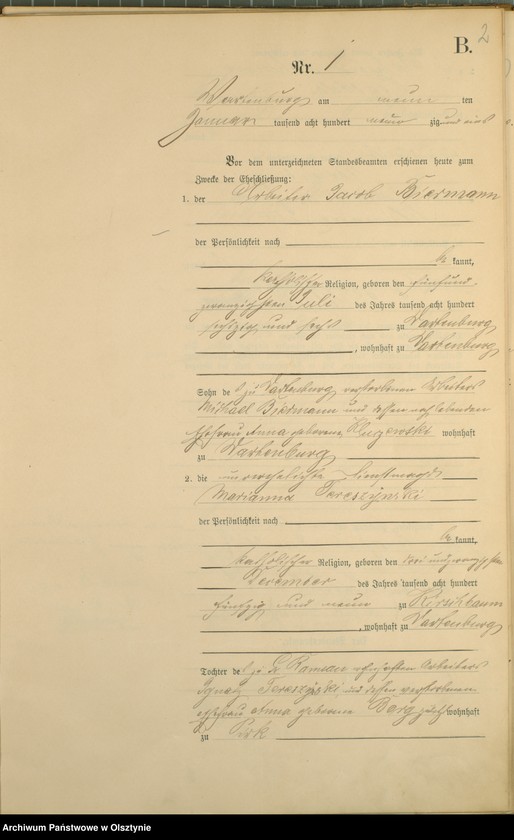 B. 2
Nr. 1
Wartenburg am neun ten
Januar tausend acht hundert neun zig und eins
Vor dem unterzeichneten Standesbeamten erschienen heute zum
Zwecke der Eheschließung:
1. der Arbeiter Jacob Biermann
der Persönlichkeit nach
be kannt,
katholischer Religion, geboren den fünfund
zwanzigsten Juli des Jahres tausend acht hundert
sechszig und sechs zu Wartenburg
, wohnhaft zu Wartenburg
Sohn des zu Wartenburg verstorbenen Arbeiters
Michael Biermann und dessen nachlebenden
Ehefrau Anna geborene wohnhaft
zu Wartenburg
2. die unverehelichte Dienstmagd
Marianna Tereszynski
der Persönlichkeit nach
be kannt,
katholischer Religion, geboren den drei und zwanzigsten
December des Jahres tausend acht hundert
fünfzig und neun zu Kirschbaum
, wohnhaft zu Wartenburg
Tochter des zu Gr. Ramsau Arbeiters
Ignatz Tereszynski und dessen verstorbenen
Ehefrau Anna geborene Berg wohnhaft
zu
Archiwum Państwowe w Olsztynie